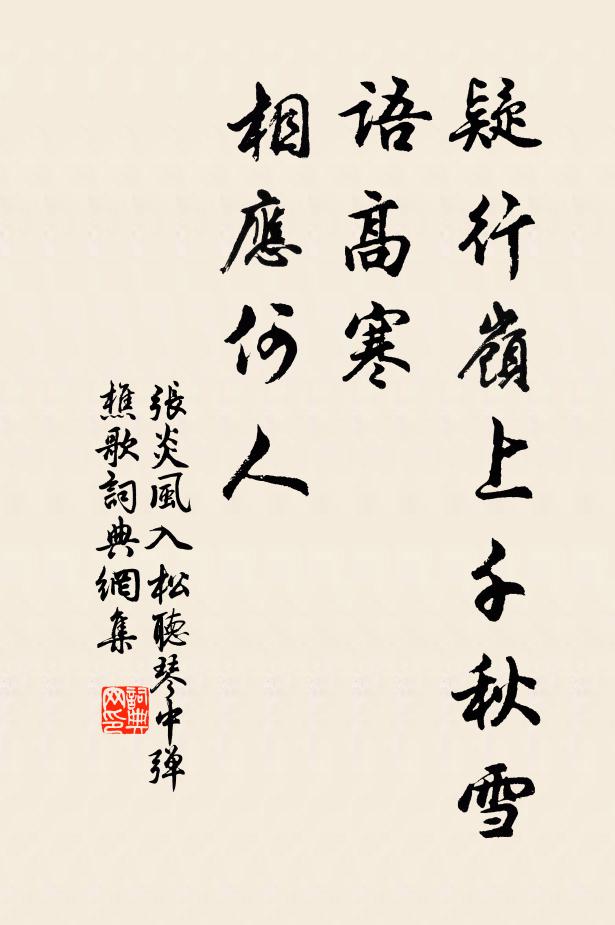 疑行嶺上千秋雪
語高寒
相應何人
張炎風入松聽琴中弹
樵歌詞典網集
詞典
网印